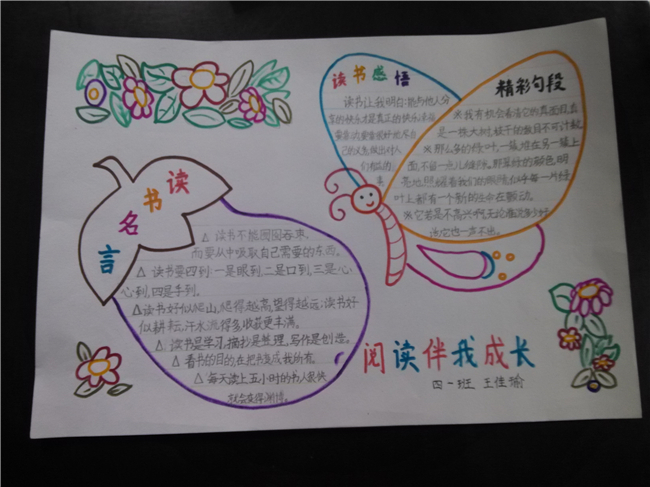 读书感悟
读书让我明白:能与他人分
享的快乐才是真正的快乐
精彩句段
※我有机会看清它的真面目,真
是一株大树,枝干的数目不可计数
※那么多的绿叶,一簇堆在另一簇上
面,不留一点儿缝隙。那翠绿的颜色,明
亮地照耀着我们的眼睛,似乎每一片绿
叶上都有一个新的生命在颤动。
※它若是不高兴啊,无论谁说多少好
话,它也一声不出。
读书名言
△读书不能囫囵吞枣,
而要从中吸取自己需要的东西。
△读书要四到:一是眼到,二是口到,三是心
心到,四是手到。
△读书好似爬山,爬得越高,望得越远;读书好
似耕耘,汗水流得多,收获更丰满。
△读书是学习,摘抄是整理,写作是创造。
△看书的目的,在把书变成我的
△每天读上五小时的书人很快
就会变得渊博。
阅读伴我成长
四一班 王佳瑜